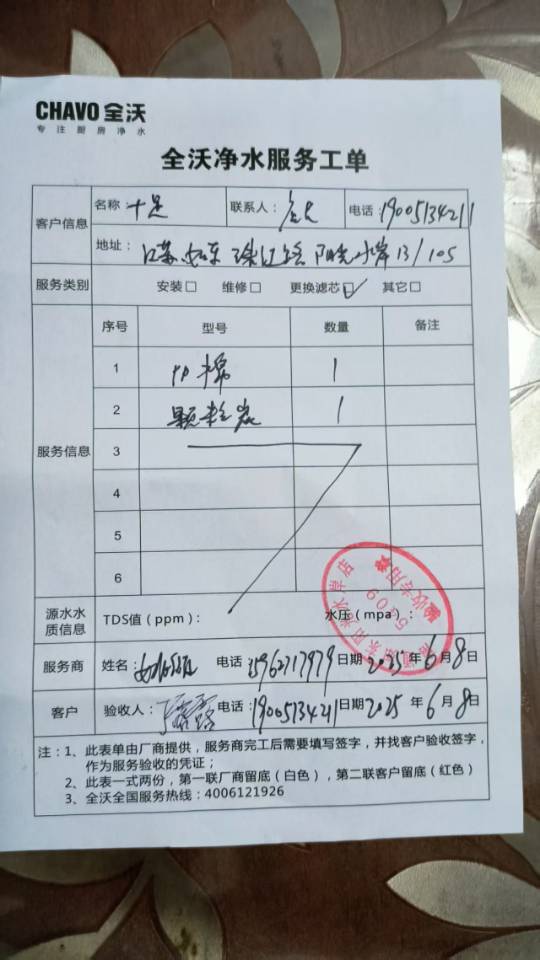 CHAVO 全沃
专注厨房净水
全沃净水服务工单
客户信息
名称：十足 联系人： 电话：19005134211
地址：江苏如东 珠江路 阳光水岸13/105
服务类别 安装□ 维修□ 更换滤芯☑ 其它□
服务信息
序号 型号 数量 备注
1 PP棉 1
2 颗粒炭 1
3
4
5
6
源水水质信息 TDS值（ppm）： 水压（mpa）：
服务商 姓名： 电话 日期 2025年6月8日
客户 验收人： 电话：19005134211 日期 2025年6月8日
注：1、此表单由厂商提供，服务商完工后需要填写签字，并找客户验收签字，
作为服务验收的凭证；
2、此表一式两份，第一联厂商留底（白色），第二联客户留底（红色）
3、全沃全国服务热线：4006121926
验收专用章